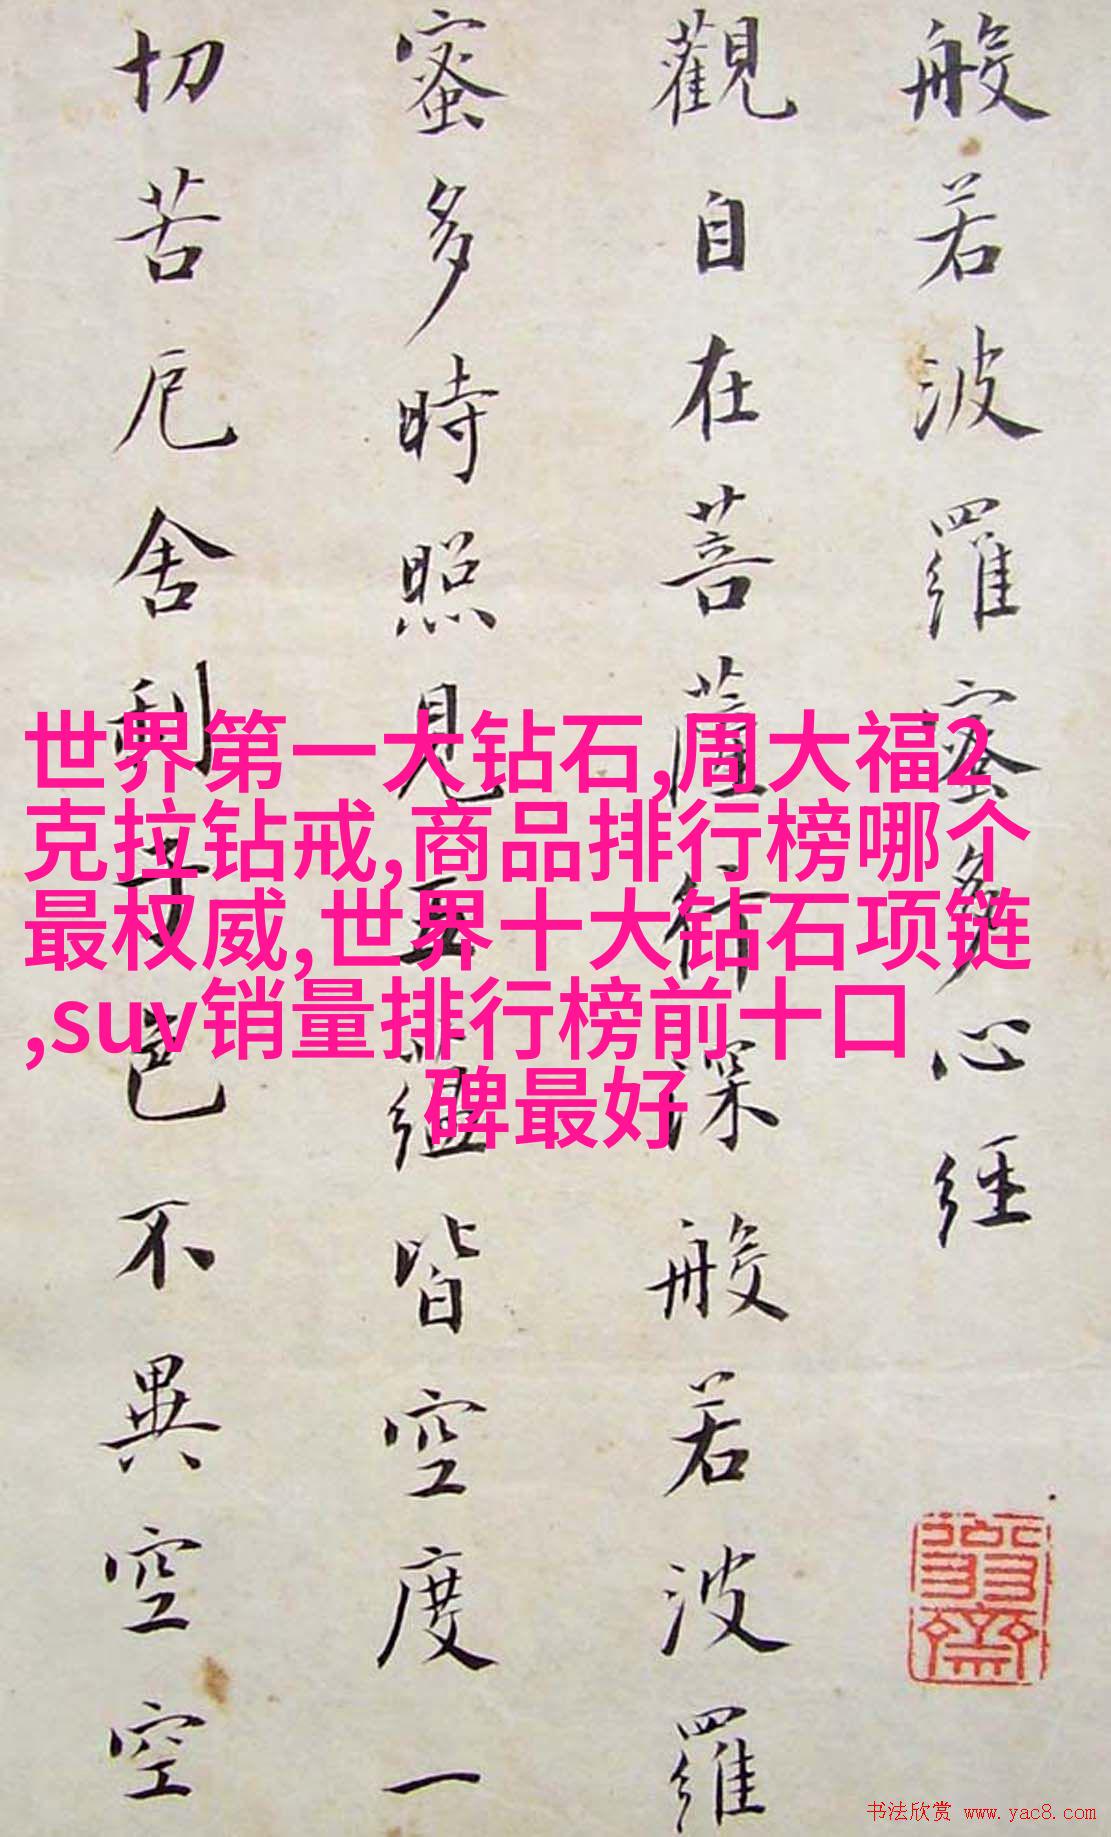 般若波羅蜜多心經
觀自在菩薩行深般若波羅
蜜多時照見五蘊皆空度一
切苦厄舍利子色不異空空
世界第一大钻石,周大福2
克拉钻戒,商品排行榜哪个
最权威,世界十大钻石项链
,suv销量排行榜前十口
碑最好
书法欣赏 www.yac8.com